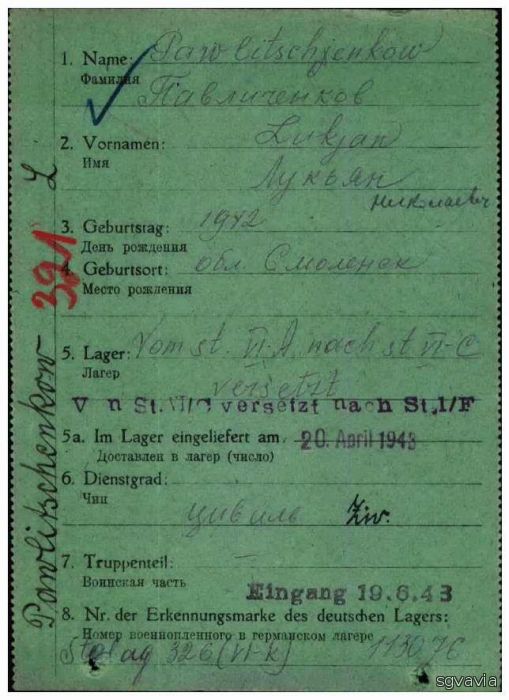 Pawlitschenkow L
381
1. Name: Pawlitschjenkow
Фамилия Павличенков
2. Vornamen: Lukjan
Имя Лукьян
Николаевич
3. Geburtstag: 1912
День рождения
4. Geburtsort: обл. Смоленск
Место рождения
5. Lager: Vom st. VI-A nach st VI-C
Лагер versetzt
V n St.VI/C versetzt nach St.I/F
5a. Im Lager eingeliefert am 20. April 1943
Доставлен в лагер (число)
6. Dienstgrad:
Чин цивиль Ziv.
7. Truppenteil: —
Воинская часть Eingang 19.6.43
8. Nr. der Erkennungsmarke des deutschen Lagers:
Номер военнопленного в германском лагере
Stalag 326 (VI-K) 113076
sgvavia